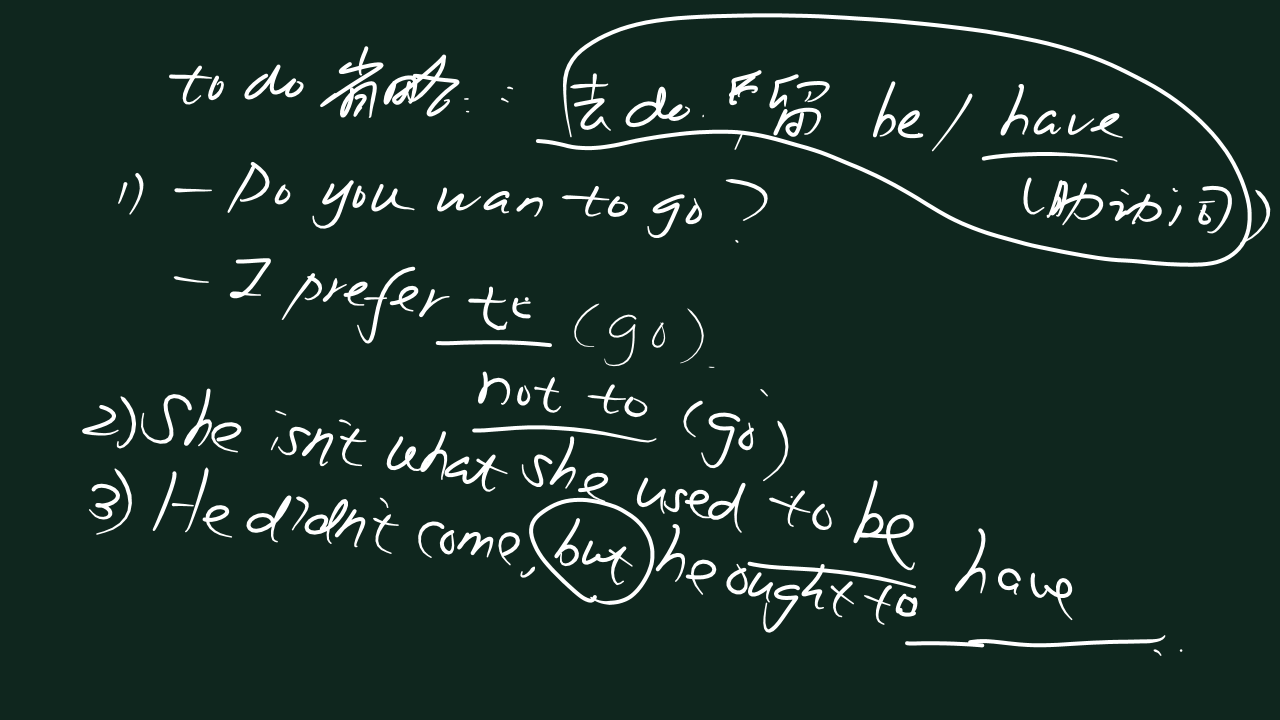 to do 省略: 去do 留 be / have
(助动词)
1) - Do you want to go?
- I prefer to (go).
not to (go)
2) She isn't what she used to be
3) He didn't come, but he ought to have